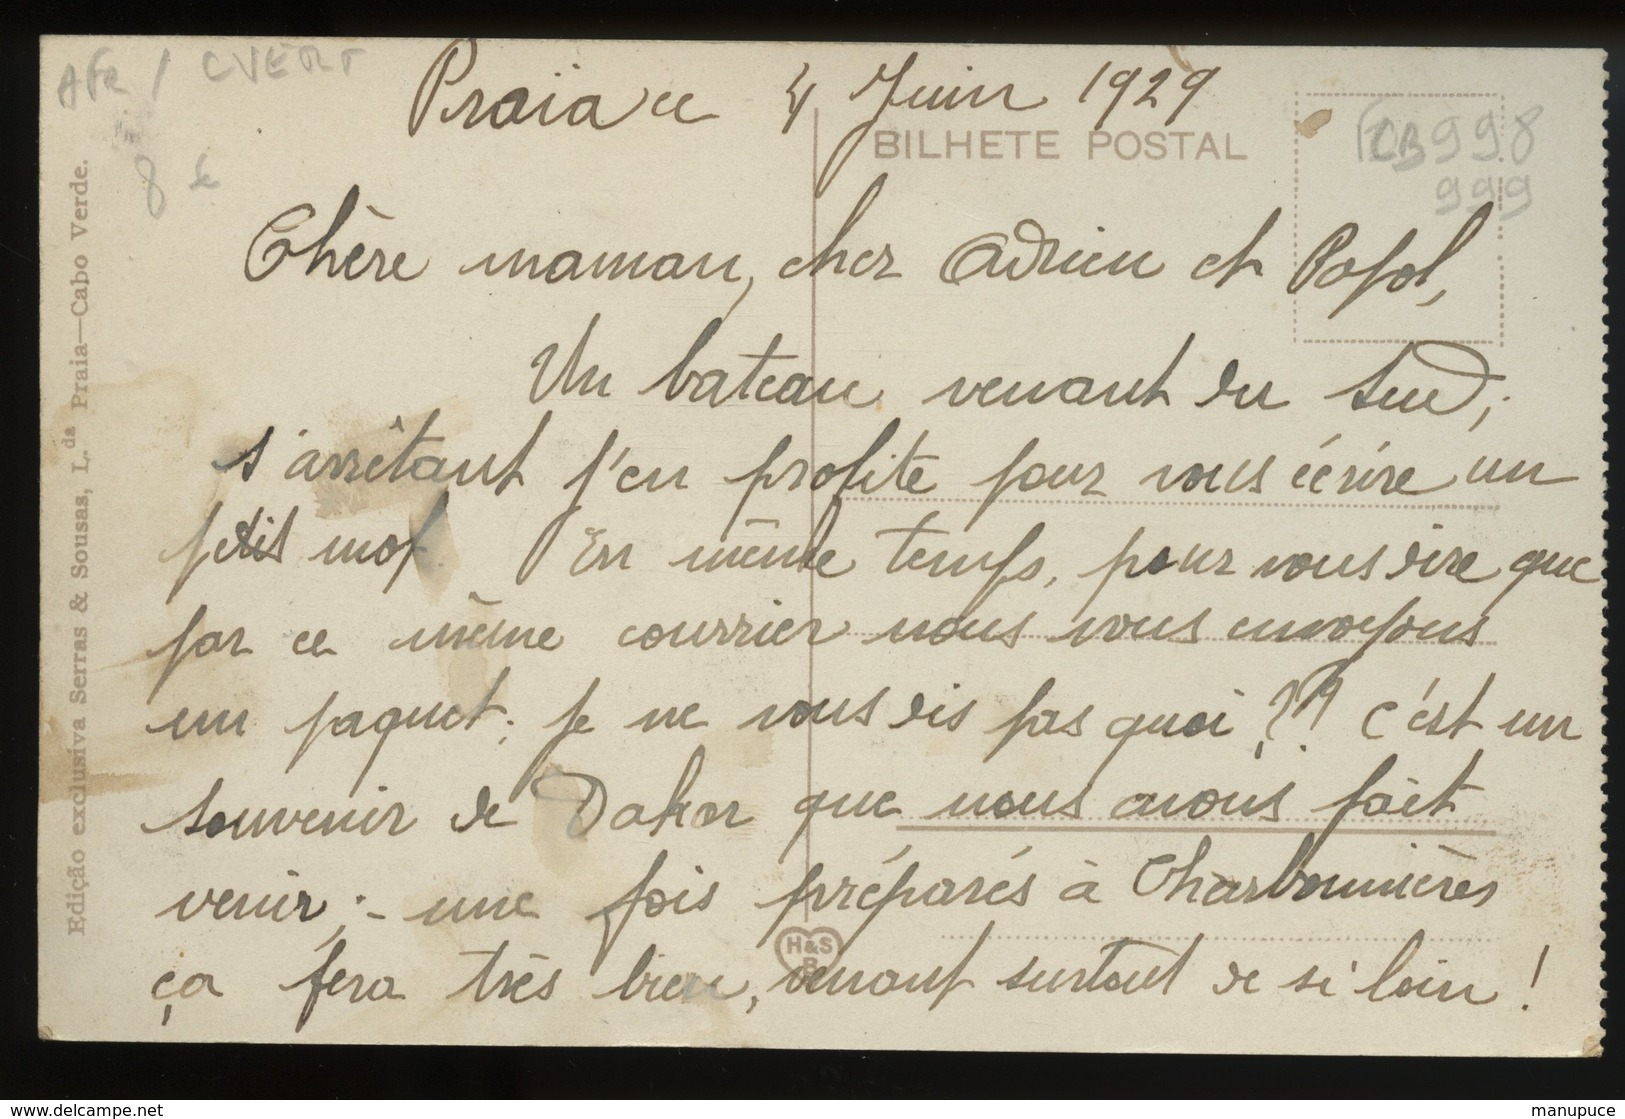 AFR / CVERT
8 €
Praïa ce 4 Juin 1929
BILHETE POSTAL
CB 998
999
Chère maman, cher Adrien et Popol,
Un bateau venant du sud,
s'arrêtant j'en profite pour vous écrire un
petit mot. En même temps, pour vous dire que
par ce même courrier nous vous envoyons
un paquet; je ne vous dis pas quoi ?? c'est un
souvenir de Dakar que nous avons fait
venir; - une fois préparés à Charbonnières
ça fera très bien, venant surtout de si loin !
H&S
B
Edição exclusiva Serras & Sousas, L.da Praia—Cabo Verde.
manupuce